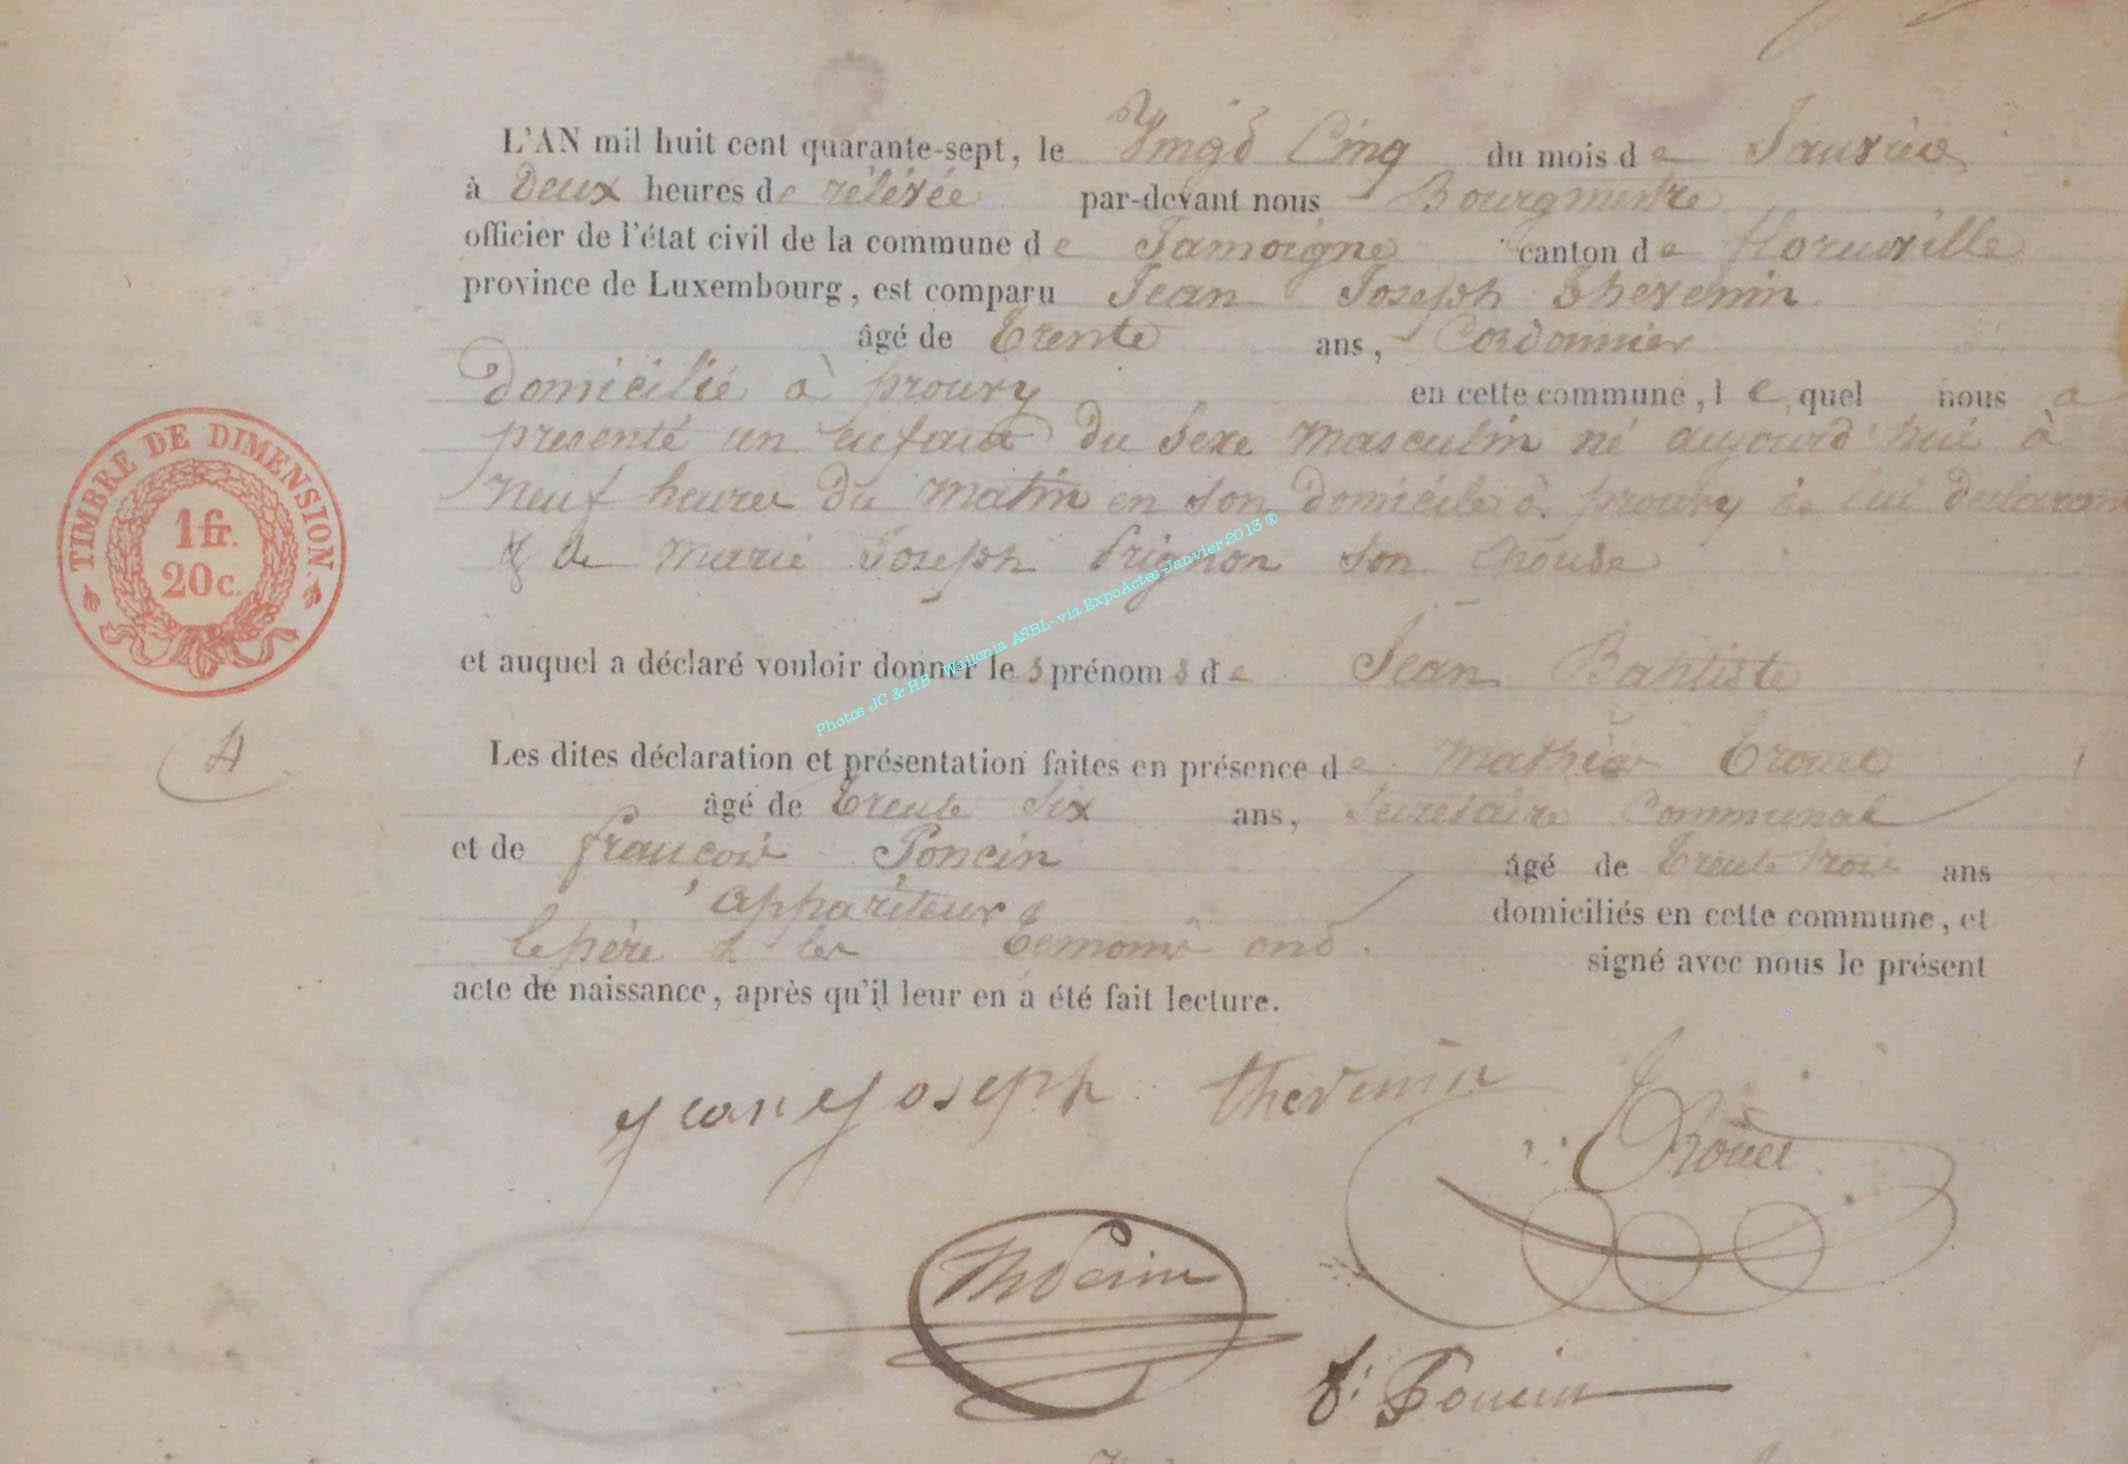 L'AN mil huit cent quarante-sept, le Vingt Cinq du mois de Janvier
à Deux heures de rélévée par-devant nous Bourgmestre
officier de l'état civil de la commune de Jamoigne canton de florenville
province de Luxembourg, est comparu Jean Joseph Thevenin
âgé de trente ans, Cordonnier
Domicilié à prouvy en cette commune, lequel nous a
presenté un enfant du sexe masculin né aujourd'hui à
neuf heures du matin en son domicile à prouvy de lui declarant
& de Marie Joseph Prignon son épouse
et auquel a déclaré vouloir donner les prénoms de Jean Baptiste
Les dites déclaration et présentation faites en présence de Mathieu
âgé de trente six ans, Secretaire Communal
et de françois Poncin âgé de trente trois ans
appariteur domiciliés en cette commune, et
le père & les temoins ont signé avec nous le présent
acte de naissance, après qu'il leur en a été fait lecture.
TIMBRE DE DIMENSION
1 fr.
20 c.
Photos JC & HB - Wallonia ASBL - via ExpoActes Janvier 2013 ®
Jean Joseph thevenin
f: Poncin